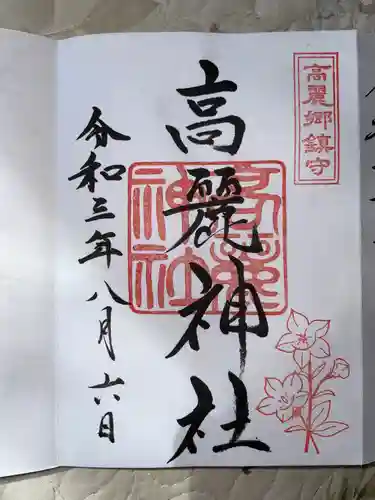 高麗郷鎮守
高麗神社
高麗神社
令和三年八月六日